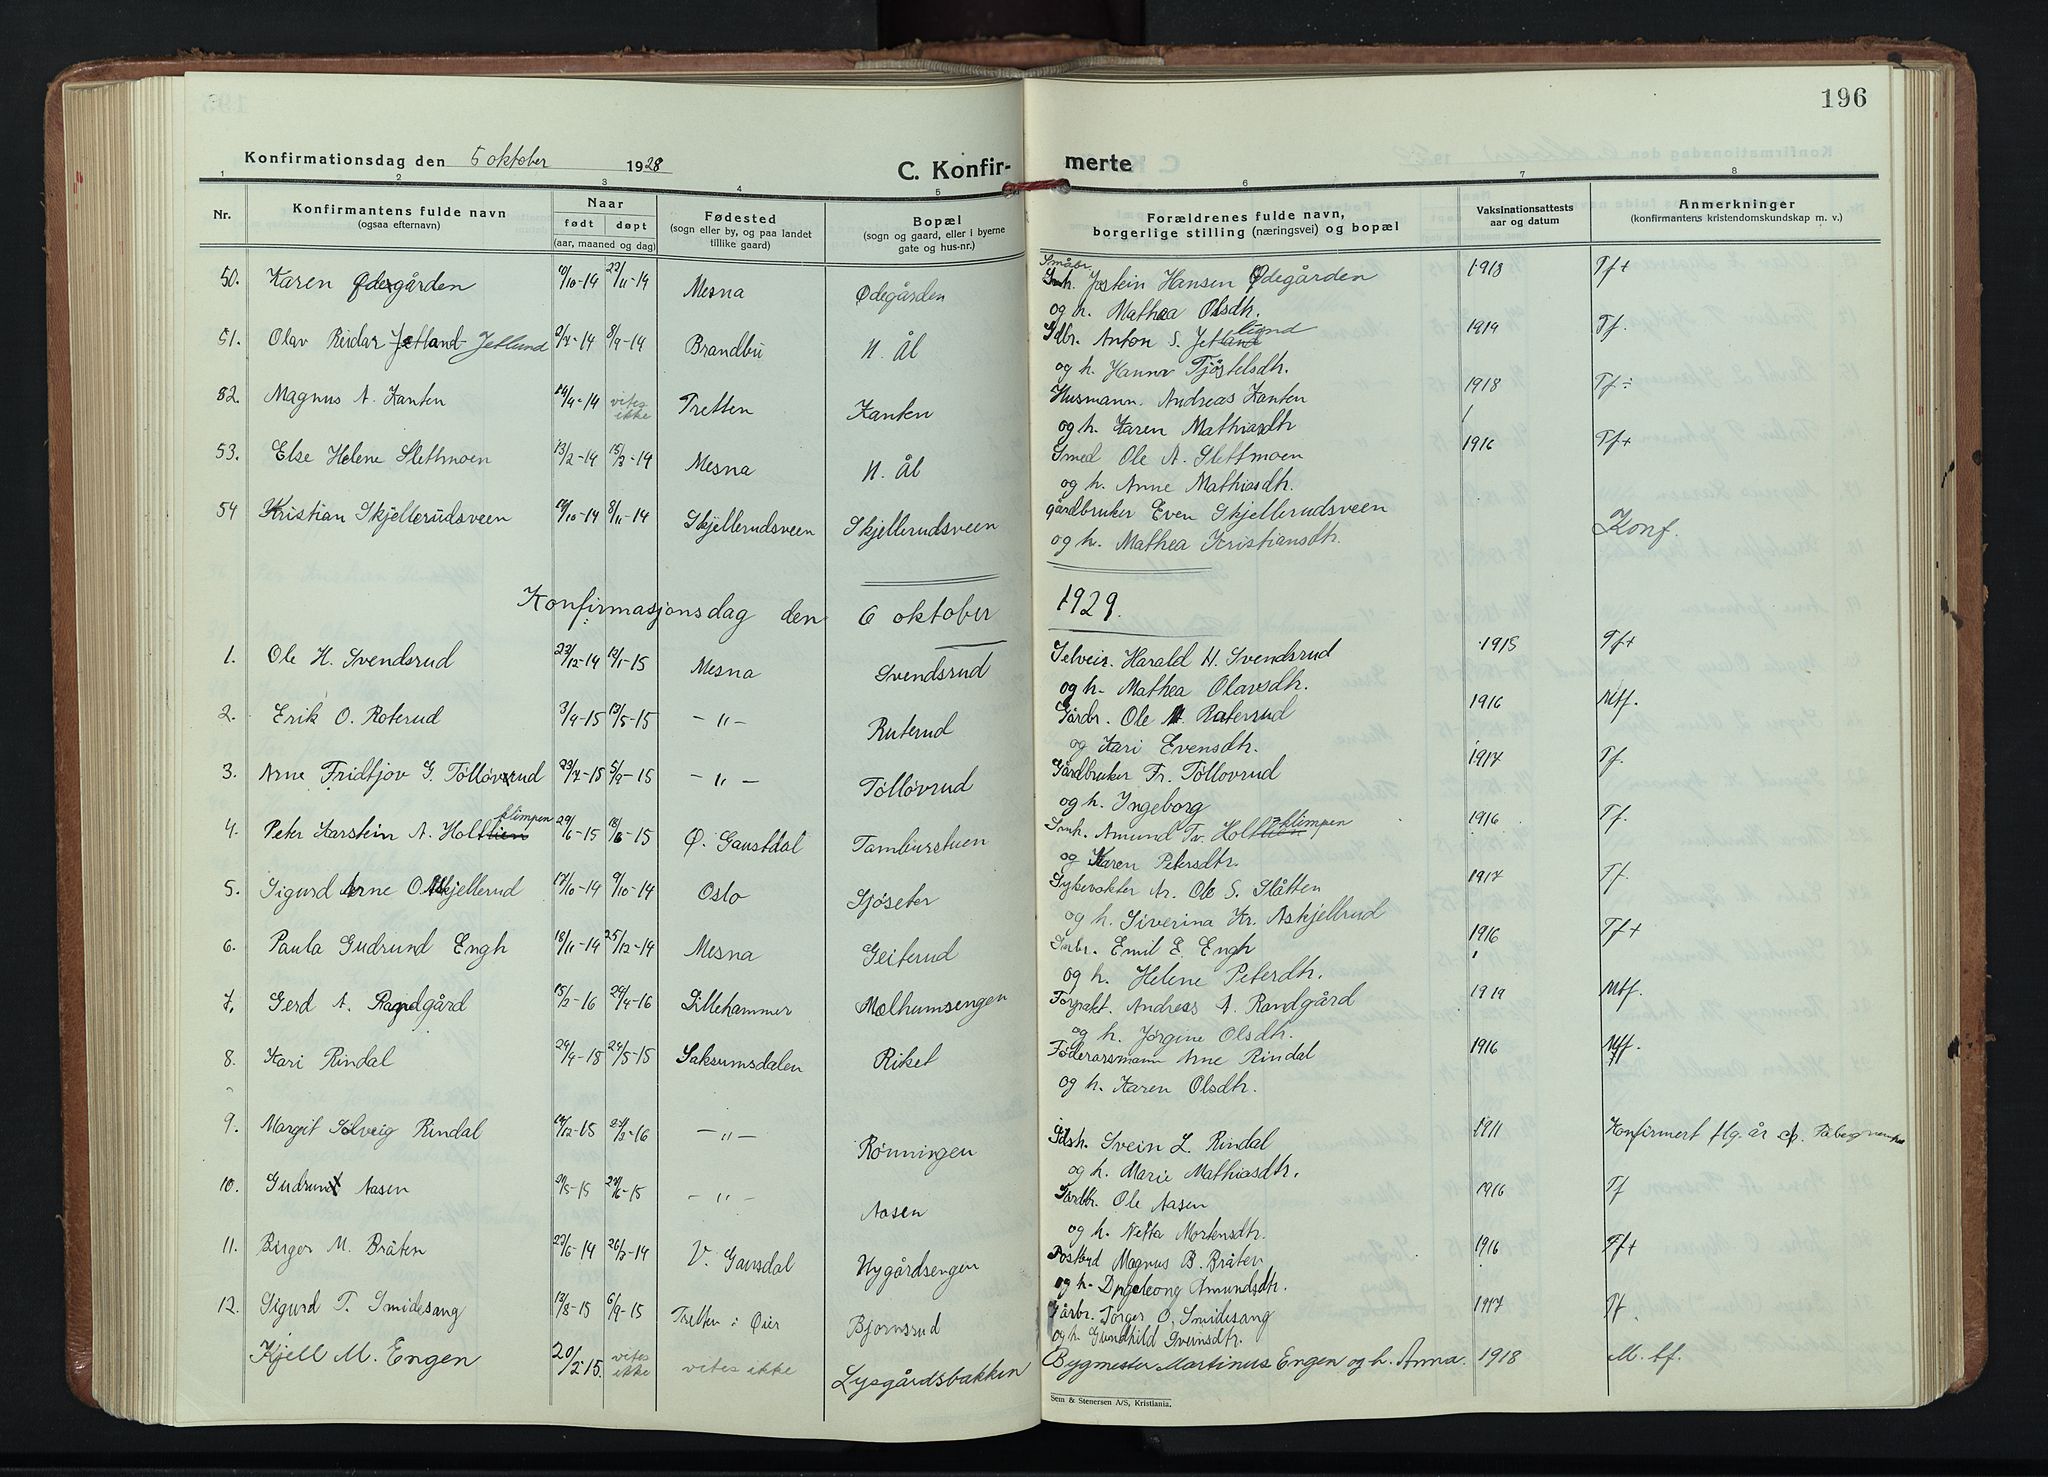 196
Konfirmationsdag den 5 oktober 1928
C. Konfir- merte
1 2 3 4 5 6 7 8
Nr. Konfirmantens fulde navn (ogsaa efternavn) Naar født døpt (aar, maaned og dag) Fødested (sogn eller by, og paa landet tillike gaard) Bopæl (sogn og gaard, eller i byerne gate og hus-nr.) Forældrenes fulde navn, borgerlige stilling (næringsvei) og bopæl Vaksinationsattests aar og datum Anmerkninger (konfirmantens kristendomskundskap m. v.)
50. Karen Ødegården /10-14 22/11-14 Mesna Ødegården Småbr. Jostein Hansen Ødegården 1918 Tf+
og h. Mathea Olsdh.
51. Olav Reidar Jetland Jetlund 2/7-14 8/9-14 Brandbu N. Ål Gdbr. Anton S. Jetland lund 1919 Tf.
og h. Hanna Tjøstelsdh.
52. Magnus A. Kanten 14/4-14 vites ikke Tretten Kanten Husmann. Andreas Kanten 1918 Tf÷
og h. Karen Mathiasdh
53. Else Helene Slettmoen 13/2-14 15/3-14 Mesna N. Ål Smed Ole A. Slettmoen 1916 Tf+
og h. Anne Mathiasdh.
54 Kristian Skjellerudsveen /10-14 8/11-14 Skjellerudsveen Skjellerudsveen gårdbruker Even Skjellerudsveen Konf.
og h. Mathea Kristiansdh.
Konfirmasjonsdag den 6 oktober 1929.
1. Ole H. Svendsrud 22/12-14 /1-15 Mesna Svendsrud Selveir. Harald H. Svendsrud 1915 Tf+
og h. Mathea Olavsdh.
2. Erik O. Roterud 3/9-15 13/5-15 -"- Ruterud Gårdbr. Ole M. Roterud 1916 Mtf.
og Kari Evensdh.
3. Arne Fridtjov G. Tølløvsrud 23/7-15 5/9-15 -"- Tølløvrud Gårdbruker Fr. Tølløvrud 1917 Tf.
og h. Ingeborg
4. Peter Karstein A. Holtlien klimpen 29/6-15 /8-15 Ø. Gausdal Tamburstuen Smh. Amund Tv. Holtlien klimpen 1916 Tf.
og Karen Petersdtr.
5. Sigurd Arne O. Askjellerud 17/10-14 9/10-14 Oslo Sjøseter Sykevokter Ar. Ole S. Slåtten 1917 Tf.
og h. Siverina Kr. Askjellrud
6. Paula Gudrund Engh 18/11-14 25/12-14 Mesna Geiterud Småbr. Emil E. Engh 1916 Tf+
og h. Helene Peterdh.
7. Gerd A. Randgård 15/2-16 24/4-16 Lillehammer Mælhumsengen Forpakt. Andreas A. Randgård 1919 Mtf.
og h. Jørgine Olsdh.
8. Kari Rindal 29/4-15 24/5-15 Saksumsdalen Riket Føderårsmann Arne Rindal 1916 Mtf.
og h. Karen Olsdh.
9. Margit Solveig Rindal /12-15 /2-16 -"- Rønningen Gdsh. Svein L. Rindal 1911 Konfirmert flg. år
og h. Marie Mathiasdh.
10. Gudrun Aasen /5-15 /6-15 -"- Aasen Gårdbr. Ole Aasen 1916 Tf
og h. Netta Mortensdh.
11. Birger M. Bråten 27/6-14 26/7-14 V. Gausdal Nygårdsengen Postbud Magnus B. Bråten 1916 Tf+
og h. Ingeborg Amundsdh.
12. Sigurd T. Smidesang 13/8-15 6/9-15 Tretten i Øier Bjornsrud Gårbr. Torger O. Smidesang 1917 Tf.
og h. Gundhild Sveinsdtr.
Kjell M. Engen 20/2-15. vites ikke vites ikke Lysgårdsbakken Bygmester Martinus Engen og h. Anna. 1918 M. tf.
Sem & Stenersen A/S, Kristiania.